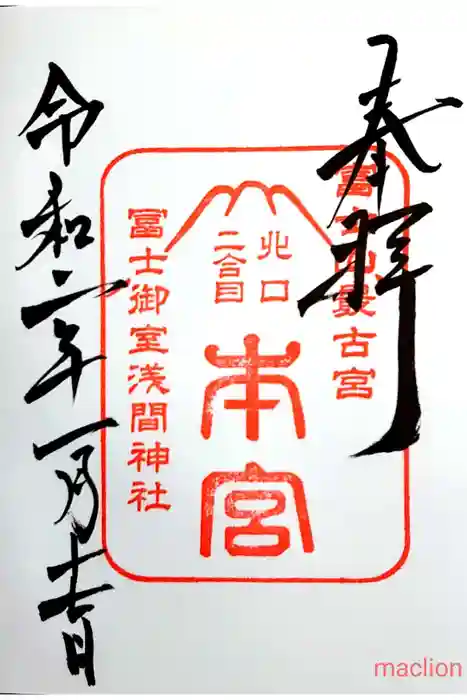 奉拝
冨士山最古宮
北口
二合目
本宮
冨士御室浅間神社
令和二年一月十六日
maclion